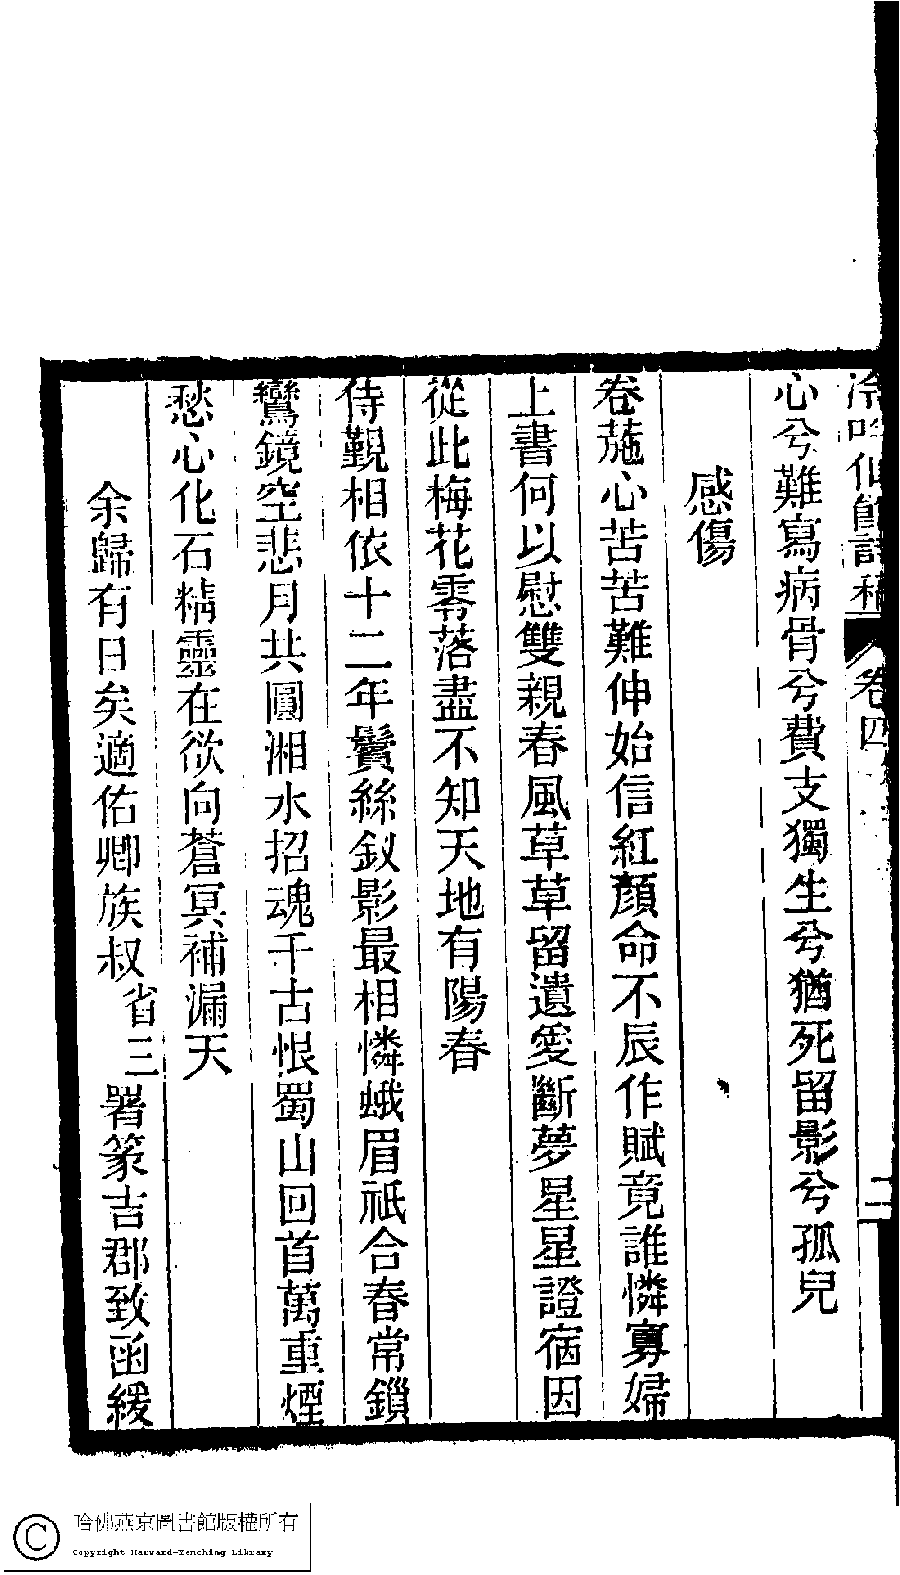 冷吟仙館詩稿 卷四 二
心兮難寫病骨兮費支獨生兮猶死留影兮孤兒
感傷
卷葹心苦苦難伸始信紅顏命不辰作賦竟誰憐寡婦
上書何以慰雙親春風草草留遺愛斷夢星星證宿因
從此梅花零落盡不知天地有陽春
侍覲相依十二年鬢絲釵影最相憐蛾眉祇合春常鎖
鸞鏡空悲月共圓湘水招魂千古恨蜀山回首萬重煙
愁心化石精靈在欲向蒼冥補漏天
余歸有日矣適佑卿族叔省三署篆吉郡致函緩
哈佛燕京圖書館版權所有
Copyright Harvard-Yenching Library